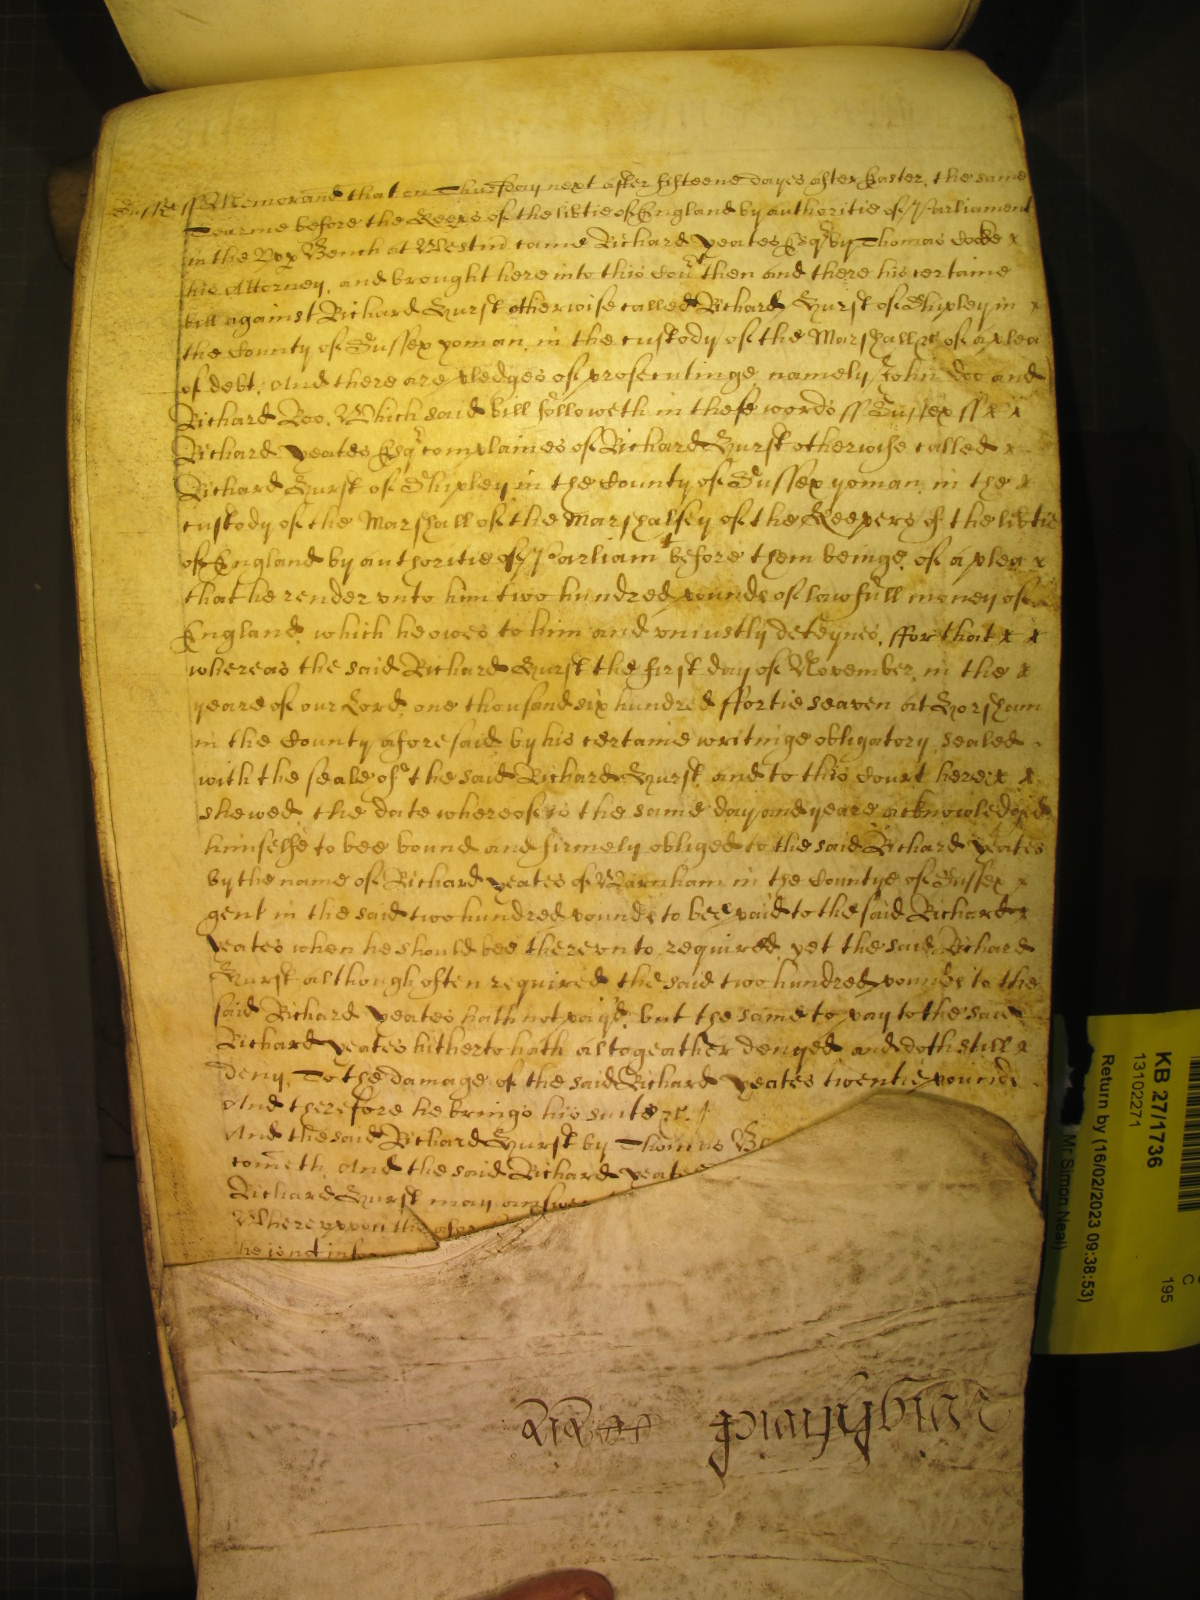 Sussex ss Memorand that on Thursday next after fifteene dayes after Easter, the same
Tearme before the Keeps of the libtie of England by authoritie of Parliament
in the Vpp Bench at Westm came Richard Yeates Esqr by Thomas Cocke x
his Attorney, and brought here into this Court then and there his certaine
bill against Richard Hurst otherwise called Richard Hurst of Shipley in x
the County of Sussex yoman, in the custody of the Marshall &c of a plea
of debt. And there are pledges of prosecutinge, namely John Doo and
Richard Roo. Which said bill followeth in these words ss Sussex ss x x
Richard Yeates Esqr complaines of Richard Hurst otherwise called x
Richard Hurst of Shipley in the County of Sussex yoman, in the x
custody of the Marshall of the Marshalsey of the Keepers of the libtie
of England by authoritie of Parliamt before them beinge, of a plea x
that he render vnto him two hundred pounds of lawfull money of
England, which he owes to him and vniustly deteynes, ffor that x x
whereas the said Richard Hurst the first day of November, in the x
yeare of our Lord, one thousand six hundred ffortie seaven at Horsham
in the County aforesaid, by his certaine writinge obligatory, sealed
with the seale of the said Richard Hurst, and to this Court here x x
shewed, the date whereof is the same day and yeare, acknowledged
himselfe to bee bound and firmely obliged to the said Richard Yeates
by the name of Richard Yeates of Warnham in the Countye of Sussex x
gent in the said two hundred pounds to bee paid to the said Richard x
Yeates when he should bee therevnto required, yet the said Richard
Hurst although often required, the said two hundred pounds to the
said Richard Yeates hath not payd, but the same to pay to the said
Richard Yeates hitherto hath altogeather denyed, and doth still x
deny, To the damage of the said Richard Yeates twentie pounds
And therefore he brings his suite &c.
And the said Richard Hurst by Thomas
cometh, And the said Richard Yeates
Richard Hurst may answer
Wherevppon the
he is not
KB 27/1736
13102271
Return by (16/02/2023 09:38:53)
Mr Simon Neal)
C
195